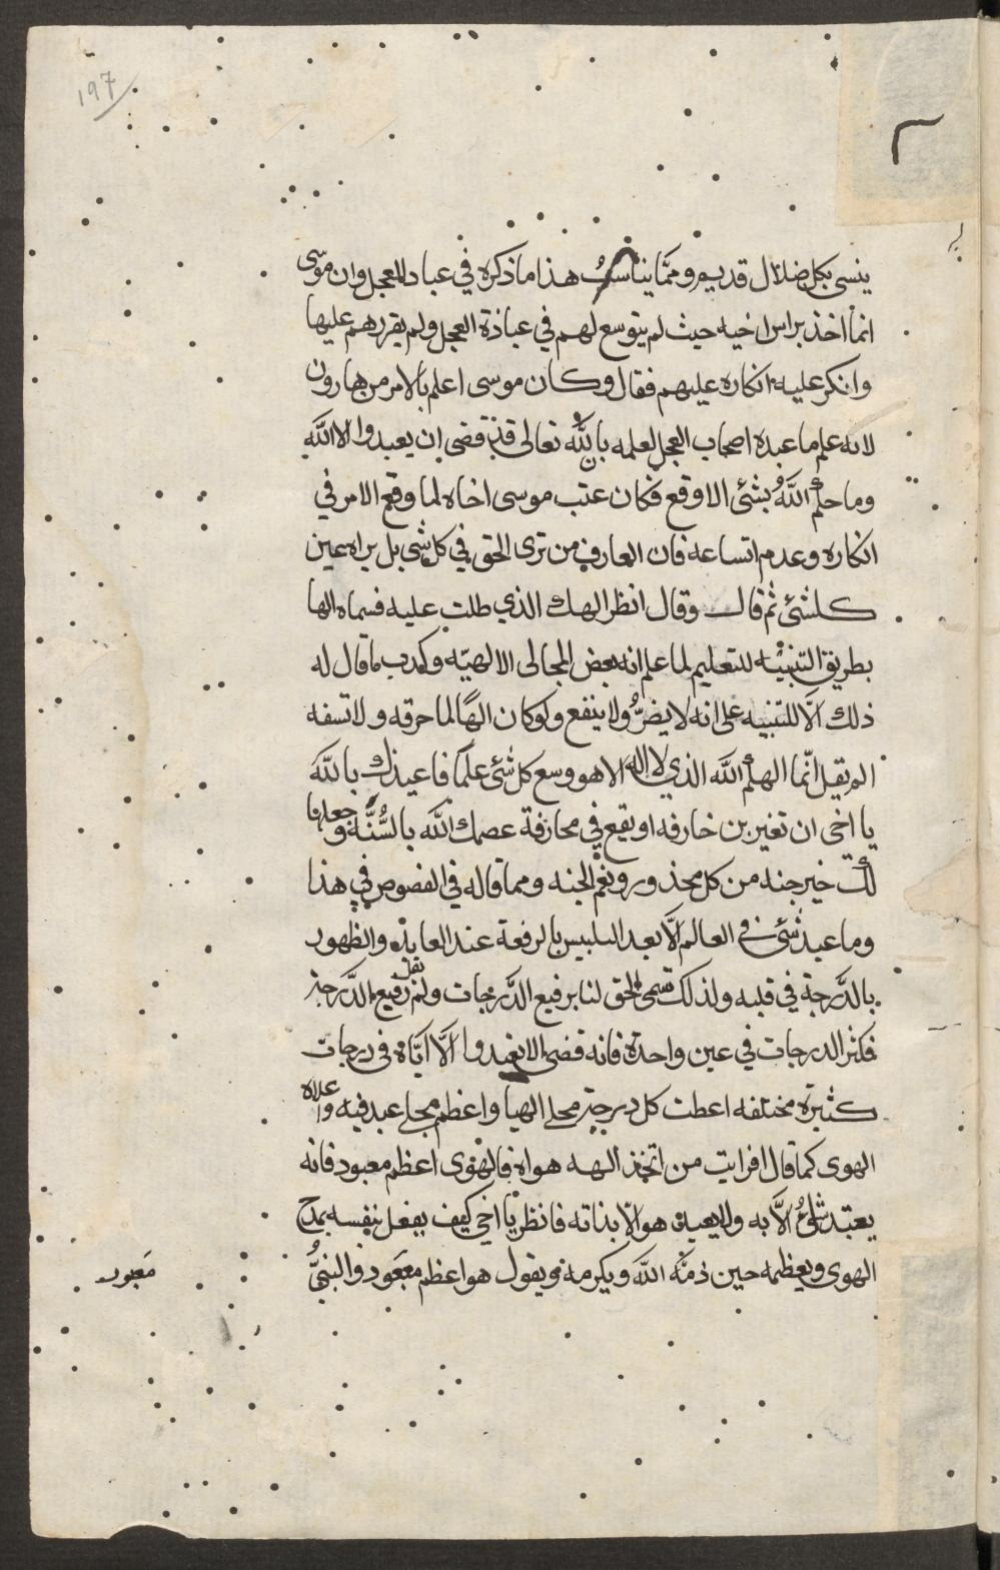 ١٩٦
ينسى بكل ضلال قديم ومما يناسب هذا ماذكره في عباد العجل وان موسى
انما اخذ براس اخيه حيث لم يتوسع لهم في عبادة العجل ولم يقررهم عليها
وانكر عليه انكاره عليهم فقال وكان موسى اعلم بالامر من هارون
لانه علم ما عبده اصحاب العجل لعلمه بان الله تعالى قد قضى ان يعبدوا الا الله
وما حكم الله بشئ الا وقع فكان عتب موسى اخاه لما وقع الامر في
انكاره وعدم اتساعه فان العارف من ترى الحق في كل شي بل يراه عين
كلشئ ثم قال وقال انظر الهك الذي ظلت عليه فسماه الها
بطريق التنبيه للتعليم لما علم انه بعض المجالى الالهيه وكذب ما قال له
ذلك الا للتنبيه على انه لا يضر ولا ينفع ولو كان الها لما حرقه ولا تسفه
الم يقل انما الهكم الله الذي لا اله الا هو وسع كل شئ علما فاعيذك بالله
يا اخى ان تغير بن خارفه او يقع في محازفة عصمك الله بالسنة وجعلها
لك خير جنه من كل محذور ونعم الجنه ومما قاله في الفصوص في هذا
وما عبد شئ في العالم الا بعد التلبيس بالرفعة عند العابد والظهور
بالدرجة في قلبه ولذلك تسمى الحق لنا برفيع الدرجات ولم يقل رفيع الدرجة
فكثر الدرجات في عين واحدة فانه قضى الا تعبدوا الا اياه في درجات
كثيرة مختلفه اعطت كل درجة مجلا الهيا واعظم مجلى عبد فيه واعلاه
الهوى كما قال افرايت من اتخذ الهه هواه فالهوى اعظم معبود فانه
يعتبد شئ الا به ولا يعبد هو الا بذاته فانظر يا اخي كيف يفعل بنفسه يمدح
الهوى ويعظمه حين ذمه الله ويكرمه ويقول هو اعظم معبود والنبي
معبود